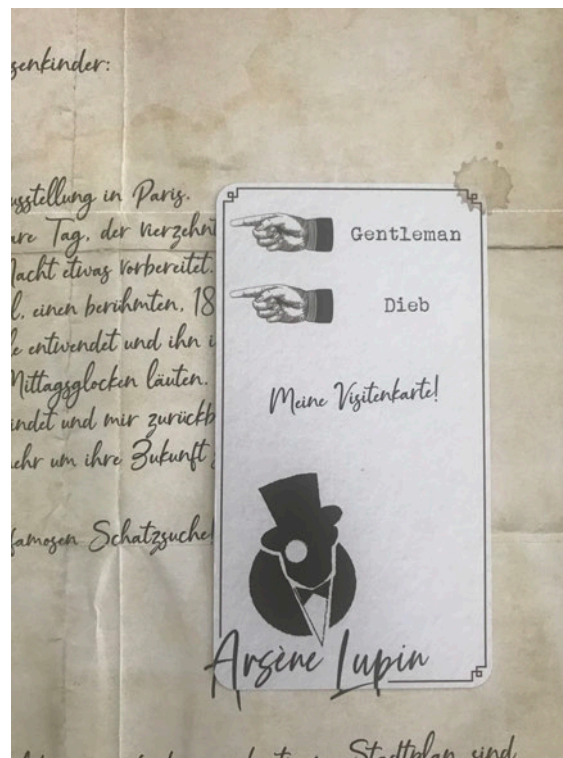 senkinder:
usstellung in Paris.
are Tag, der vierzehnt
Nacht etwas vorbereitet.
l, einen berühmten, 18
e entwendet und ihn i
Mittagsglocken läuten.
indet und mir zurückb
ehr um ihre Zukunft
famosen Schatzsuche!
Gentleman
Dieb
Meine Visitenkarte!
Arsène Lupin
Stadtplan sind